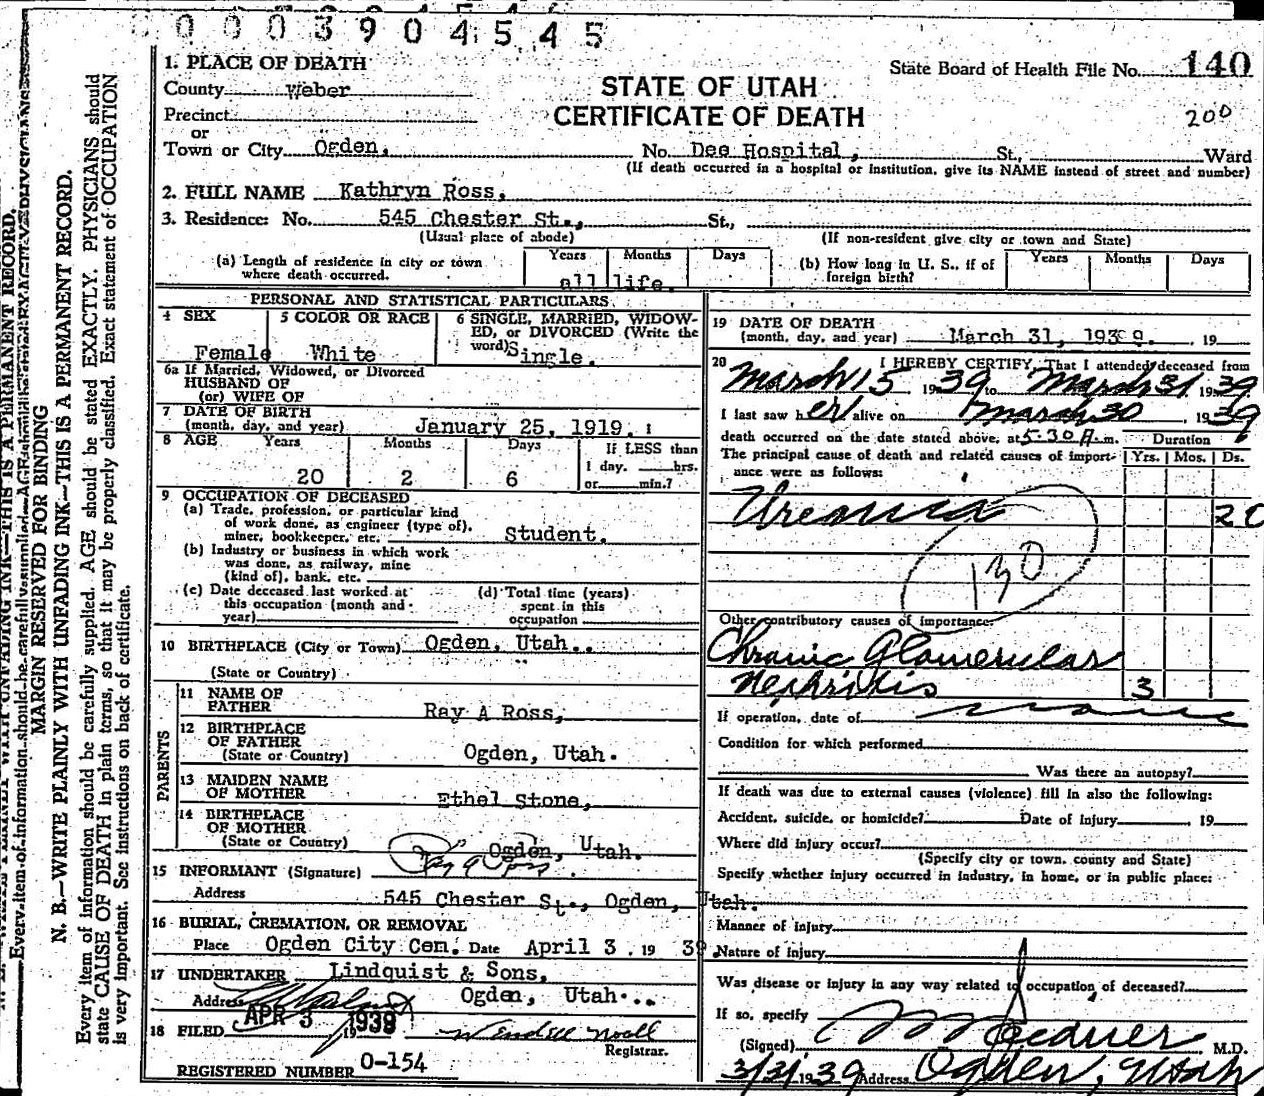 0003904545
1. PLACE OF DEATH
State Board of Health File No. 140
County Weber
STATE OF UTAH
200
Precinct
CERTIFICATE OF DEATH
or
Town or City Ogden, No. Dee Hospital, St., Ward
(If death occurred in a hospital or institution, give its NAME instead of street and number)
2. FULL NAME Kathryn Ross,
3. Residence: No. 545 Chester St., St.,
(Usual place of abode) (If non-resident give city or town and State)
(a) Length of residence in city or town where death occurred. Years Months Days
all life.
(b) How long in U. S., if of foreign birth? Years Months Days
PERSONAL AND STATISTICAL PARTICULARS
4 SEX 5 COLOR OR RACE 6 SINGLE, MARRIED, WIDOW-
ED, or DIVORCED (Write the
word)
Female White Single.
6a If Married, Widowed, or Divorced
HUSBAND OF
(or) WIFE OF
7 DATE OF BIRTH
(month, day, and year) January 25, 1919.
8 AGE Years Months Days If LESS than
1 day. hrs.
20 2 6 or min.?
9 OCCUPATION OF DECEASED
(a) Trade, profession, or particular kind
of work done, as engineer (type of),
miner, bookkeeper, etc. Student.
(b) Industry or business in which work
was done, as railway, mine
(kind of), bank, etc.
(c) Date deceased last worked at
this occupation (month and
year)
(d) Total time (years)
spent in this
occupation
10 BIRTHPLACE (City or Town) Ogden, Utah.
(State or Country)
PARENTS
11 NAME OF
FATHER Ray A Ross,
12 BIRTHPLACE
OF FATHER
(State or Country) Ogden, Utah.
13 MAIDEN NAME
OF MOTHER Ethel Stone,
14 BIRTHPLACE
OF MOTHER
(State or Country) Ogden, Utah.
15 INFORMANT (Signature) Ray A Ross
Address 545 Chester St., Ogden, Utah.
16 BURIAL, CREMATION, OR REMOVAL
Place Ogden City Cem. Date April 3. 19 39
17 UNDERTAKER Lindquist & Sons,
Address Ogden, Utah.
18 FILED APR 3 1939
Registrar.
REGISTERED NUMBER O-154
19 DATE OF DEATH
(month, day, and year) March 31, 1939. 19
20 I HEREBY CERTIFY, That I attended deceased from
March 15 1939 to March 31 1939
I last saw her alive on March 30 1939
death occurred on the date stated above, at 5:30 A.m. Duration
The principal cause of death and related causes of import-
ance were as follows: Yrs. Mos. Ds.
Uremia 20
130
Other contributory causes of importance:
Chronic Glomerular
Nephritis 3
If operation, date of none
Condition for which performed
Was there an autopsy?
If death was due to external causes (violence) fill in also the following:
Accident, suicide, or homicide? Date of Injury 19
Where did injury occur?
(Specify city or town, county and State)
Specify whether injury occurred in industry, in home, or in public place:
Manner of injury
Nature of injury
Was disease or injury in any way related to occupation of deceased?
If so, specify
(Signed) M.D.
3/31 1939 Address Ogden, Utah
MARGIN RESERVED FOR BINDING
N. B.—WRITE PLAINLY WITH UNFADING INK—THIS IS A PERMANENT RECORD.
Every item of information should be carefully supplied. AGE should be stated EXACTLY. PHYSICIANS should
state CAUSE OF DEATH in plain terms, so that it may be properly classified. Exact statement of OCCUPATION
is very important. See instructions on back of certificate.